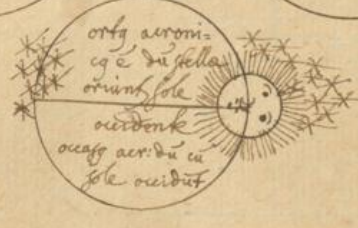 ortꝰ acroni=
cꝰ ē dū stella
oriunt sole
occidente
occasꝰ acr: dū cū
sole occidūt